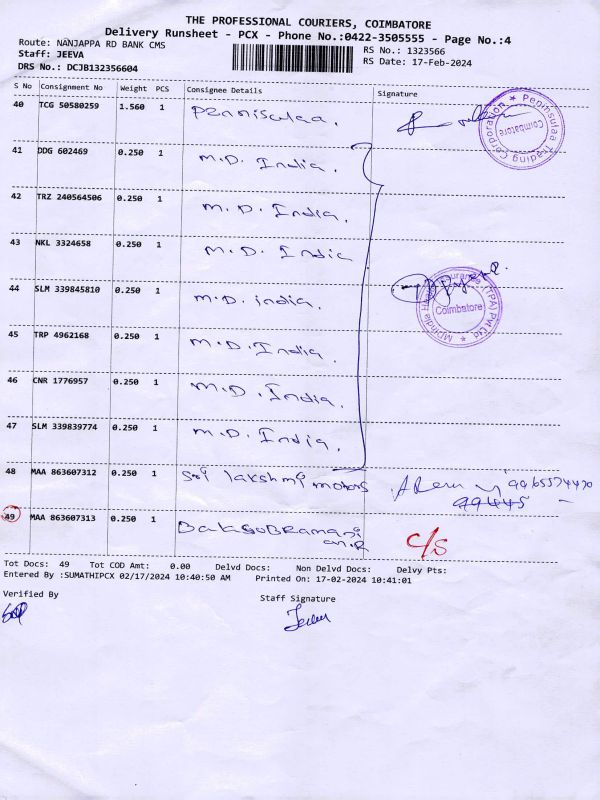 THE PROFESSIONAL COURIERS, COIMBATORE
Delivery Runsheet - PCX - Phone No.:0422-3505555 - Page No.:4
Route: NANJAPPA RD BANK CMS
RS No.: 1323566
Staff: JEEVA
RS Date: 17-Feb-2024
DRS No.: DCJB132356604
S No Consignment No Weight PCS Consignee Details Signature
40 TCG 50580259 1.560 1 Penninsulaa.
Peninsulaa Trading Corporation ★ Coimbatore
41 DDG 602469 0.250 1 M.D. India.
42 TRZ 240564506 0.250 1 M.D. India.
43 NKL 3324658 0.250 1 M.D. India
44 SLM 339845810 0.250 1 M.D. india.
(TPA) Pvt Ltd ★ Coimbatore
45 TRP 4962168 0.250 1 M.D. India.
46 CNR 1776957 0.250 1 M.D. India.
47 SLM 339839774 0.250 1 M.D. India.
48 MAA 863607312 0.250 1 Sri lakshmi motors
99445
49 MAA 863607313 0.250 1 BalaSUBRamani
m.R
C/S
Tot Docs: 49 Tot COD Amt: 0.00 Delvd Docs: Non Delvd Docs: Delvy Pts:
Entered By :SUMATHIPCX 02/17/2024 10:40:50 AM Printed On: 17-02-2024 10:41:01
Verified By
Staff Signature
Jeeva